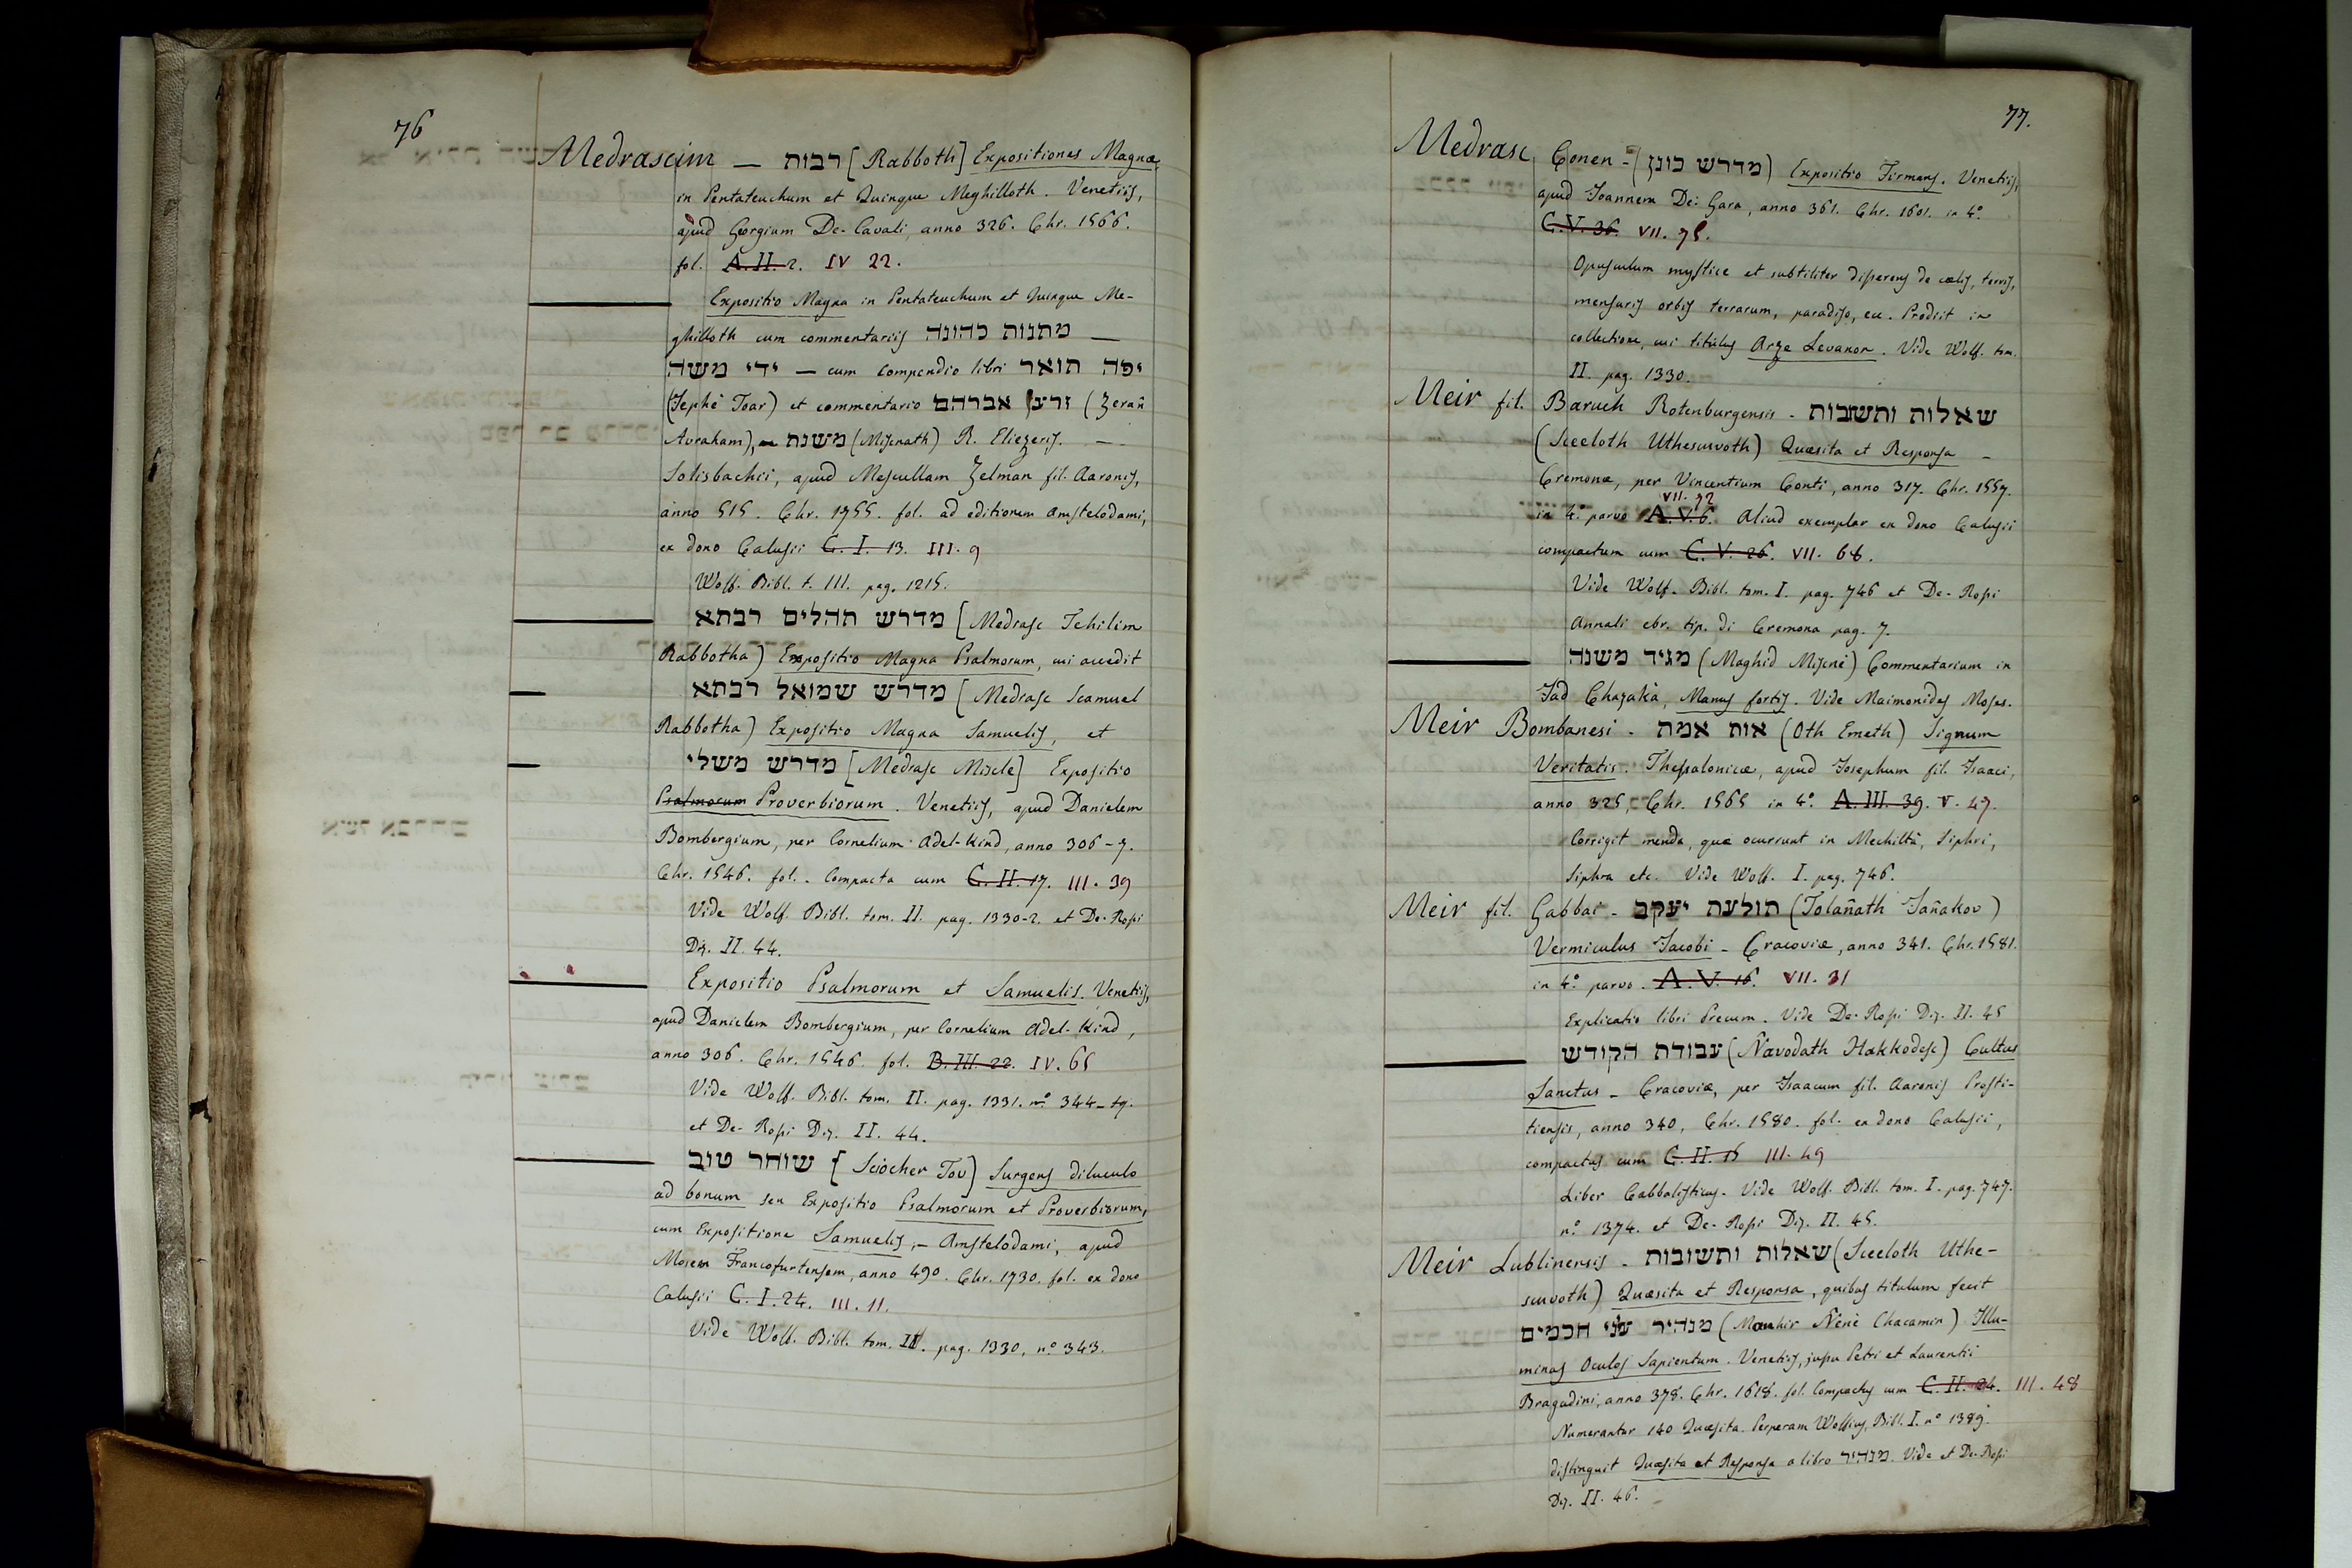 76
Medrascim — רבות [Rabboth] Expositiones Magnæ
in Pentateuchum et Quinque Meghilloth. Venetiis,
apud Georgium De-Cavali, anno 326. Chr. 1566.
fol. A. II. 2. IV 22.
Expositio Magna in Pentateuchum et Quinque Me-
ghilloth cum commentariis מתנות כהונה —
ידי משה — cum compendio libri יפה תואר
(Jephè Toar) et commentario זרע אברהם (Zerañ
Avraham), — משנת (Miscnath) R. Eliezeris. —
Solisbachii, apud Mescullam Zelman fil. Aaronis,
anno 515. Chr. 1755. fol. ad editionem Amstelodami,
ex dono Calusii C. I. 13. III. 9
Wolf. Bibl. t. III. pag. 1215.
מדרש תהלים רבתא [Medrasc Tehilim
Rabbotha) Expositio Magna Psalmorum, cui accedit
מדרש שמואל רבתא [Medrasc Scamuel
Rabbotha) Expositio Magna Samuelis, et
מדרש משלי [Medrasc Miscle] Expositio
Psalmorum Proverbiorum. Venetiis, apud Danielem
Bombergium, per Cornelium Adel-Kind, anno 306-7.
Chr. 1546. fol. Compacta cum C. II. 17. III. 39
Vide Wolf. Bibl. tom. II. pag. 1330-2. et De-Rossi
Diz. II. 44.
Expositio Psalmorum et Samuelis. Venetiis,
apud Danielem Bombergium, per Cornelium Adel-Kind,
anno 306. Chr. 1546. fol. B. III. 22. IV. 65
Vide Wolf. Bibl. tom. II. pag. 1331. n.º 344-
et De-Rossi Diz. II. 44.
שוחר טוב [Sciocher Tov] Surgens diluculo
ad bonum seu Expositio Psalmorum et Proverbiorum,
cum Expositione Samuelis, — Amstelodami, apud
Mosem Francofurtensem, anno 490. Chr. 1730. fol. ex dono
Calusii C. I. 24. III. 11.
Vide Wolf. Bibl. tom. II. pag. 1330, n.º 343.
77.
Medrasc Conen - (מדרש כונן) Expositio Firmans. Venetiis,
apud Joannem De-Gara, anno 361. Chr. 1601. in 4.º
C. V. 36. VII. 75.
Opusculum mystice et subtiliter disserens de cælis, terris,
mensuris orbis terrarum, paradiso, ec. Prodiit in
collectione, cui titulus Arze Levanon. Vide Wolf. tom.
II. pag. 1330.
Meir fil. Baruch Rotenburgensis - שאלות ותשובות
(Sceeloth Uthescuvoth) Quæsita et Responsa -
Cremonæ, per Vincentium Conti, anno 317. Chr. 1557.
in 4.º parvo A. V. 6. VII. 72 Aliud exemplar ex dono Calusii
compactum cum C. V. 26. VII. 68.
Vide Wolf. Bibl. tom. I. pag. 746 et De-Rossi
Annali ebr. tip. di Cremona pag. 7.
מגיד משנה (Maghid Miscnè) Commentarium in
Jad Chazakà, Manus fortis. Vide Maimonides Moses.
Meir Bombanesi - אות אמת (Oth Emeth) Signum
Veritatis. Thessalonicæ, apud Josephum fil. Isaaci,
anno 325, Chr. 1565 in 4.º A. III. 39. V. 47.
Corrigit menda, quæ ocurrunt in Mechiltà, Siphri,
Siphra etc. Vide Wolf. I. pag. 746.
Meir fil. Gabbai - תולעת יעקב (Tolañath Jañakov)
Vermiculus Jacobi - Cracoviæ, anno 341. Chr. 1581.
in 4.º parvo. A. V. 16. VII. 31
Explicatio libri Precum. Vide De-Rossi Diz. II. 45
עבודת הקודש (Navodath Hakkodesc) Cultus
Sanctus - Cracoviæ, per Isaacum fil. Aaronis Prosti-
tiensis, anno 340, Chr. 1580. fol. ex dono Calusii,
compactus cum C. II. 15 III. 49
Liber Cabbalisticus. Vide Wolf. Bibl. tom. I. pag. 747.
n.º 1374. et De-Rossi Diz. II. 45.
Meir Lublinensis - שאלות ותשובות (Sceeloth Uthe-
scuvoth) Quæsita et Responsa, quibus titulum fecit
מנהיר עני חכמים (Manhir Nenè Chacamin) Illu-
minas Oculos Sapientum. Venetiis, jussu Petri et Laurentii
Bragadini, anno 378. Chr. 1618. fol. Compactus cum C. II. 24. III. 48
Numerantur 140 Quæsita. Perperam Wolfius, Bibl. I. n.º 1389.
distinguit Quæsita et Responsa a libro מנהיר. Vide et De-Rossi
Diz. II. 46.